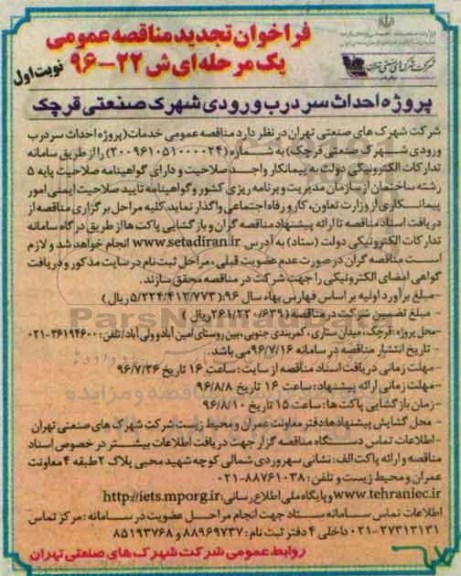 فراخوان تجدید مناقصه عمومی
یک مرحله ای ش ۲۲-۹۶
نوبت اول
پروژه احداث سر درب ورودی شهرک صنعتی قرچک
شرکت شهرک های صنعتی تهران در نظر دارد مناقصه عمومی خدمات (پروژه احداث سر درب
ورودی شهرک صنعتی قرچک) به شماره (۲۰۰۹۶۱۰۵۱۰۰۰۰۲۴) را از طریق سامانه
تدارکات الکترونیکی دولت به پیمانکار واجد صلاحیت و دارای گواهینامه صلاحیت پایه ۵
رشته ساختمان از سازمان مدیریت و برنامه ریزی کشور و گواهینامه تایید صلاحیت ایمنی امور
پیمانکاری از وزارت تعاون، کار و رفاه اجتماعی واگذار نماید. کلیه مراحل برگزاری مناقصه از
دریافت اسناد مناقصه تا ارائه پیشنهاد مناقصه گران و بازگشایی پاکت ها از طریق درگاه سامانه
تدارکات الکترونیکی دولت (ستاد) به آدرس www.setadiran.ir انجام خواهد شد و لازم
است مناقصه گران در صورت عدم عضویت قبلی، مراحل ثبت نام در سایت مذکور و دریافت
گواهی امضای الکترونیکی را جهت شرکت در مناقصه محقق سازند.
-مبلغ برآورد اولیه بر اساس فهارس بهاء سال ۹۶: (۵/۲۲۴/۴۱۲/۷۷۳ ریال)
- مبلغ تضمین شرکت در مناقصه (۲۶۱/۲۲۰/۶۳۹ ریال)
-محل پروژه: قرچک، میدان ستاری، کمربندی جنوبی، بین روستای امین آباد و ولی آباد / تلفن: ۳۶۱۹۴۶۰۰-۰۲۱
- تاریخ انتشار مناقصه در سامانه ۹۶/۷/۱۶ می باشد.
-مهلت زمانی دریافت اسناد مناقصه از سایت: ساعت ۱۶ تاریخ ۹۶/۷/۲۶
-مهلت زمانی ارائه پیشنهاد: ساعت ۱۶ تاریخ ۹۶/۸/۸
-زمان بازگشایی پاکت ها: ساعت ۱۵ تاریخ ۹۶/۸/۱۰
- محل گشایش پیشنهادها: دفتر معاونت عمران و محیط زیست شرکت شهرک های صنعتی تهران
-اطلاعات تماس دستگاه مناقصه گزار جهت دریافت اطلاعات بیشتر در خصوص اسناد
مناقصه و ارائه پاکت الف: نشانی سهروردی شمالی کوچه شهید محبی پلاک ۲ طبقه ۴ معاونت
عمران و محیط زیست و تلفن: ۸۸۷۶۱۰۳۸-۰۲۱
www.tehraniec.ir و پایگاه ملی اطلاع رسانی: http://iets.mporg.ir
اطلاعات تماس سامانه ستاد جهت انجام مراحل عضویت در سامانه: مرکز تماس
۲۷۳۱۳۱۳۱-۰۲۱ داخلی ۴ دفتر ثبت نام: ۸۸۹۶۹۷۳۷ و ۸۵۱۹۳۷۶۸
روابط عمومی شرکت شهرک های صنعتی تهران